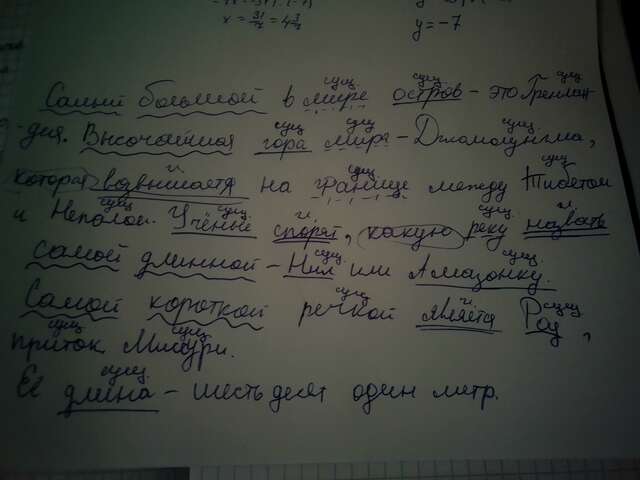 x = 31/7 = 4 3/7
y = -7
сущ сущ сущ
Самый большой в мире остров - это Гренлан-
сущ сущ сущ
дия. Высочайшая гора мира - Джомолунгма,
г сущ сущ
которая возвышается на границе между Тибетом
сущ сущ г сущ г
и Непалом. Учёные спорят, какую реку назвать
сущ сущ
самой длинной - Нил или Амазонку.
сущ г сущ
Самой короткой речкой является Роу,
сущ сущ
приток Миссури.
сущ
Её длина - шестьдесят один метр.